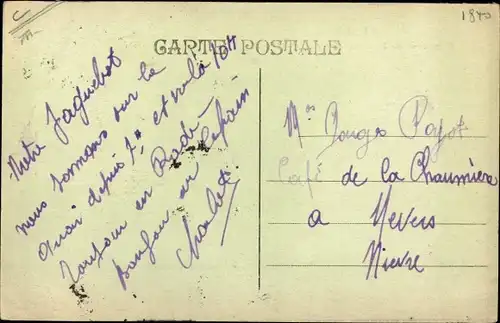 1840
CARTE POSTALE
Notre Jaquebot
nous sommes sur le
quai depuis 1H et
toujours en Rade
bonjour au copain
Charlot
Mrs Rouges Payot
Café de la Chaumière
a Nevers
Nievre